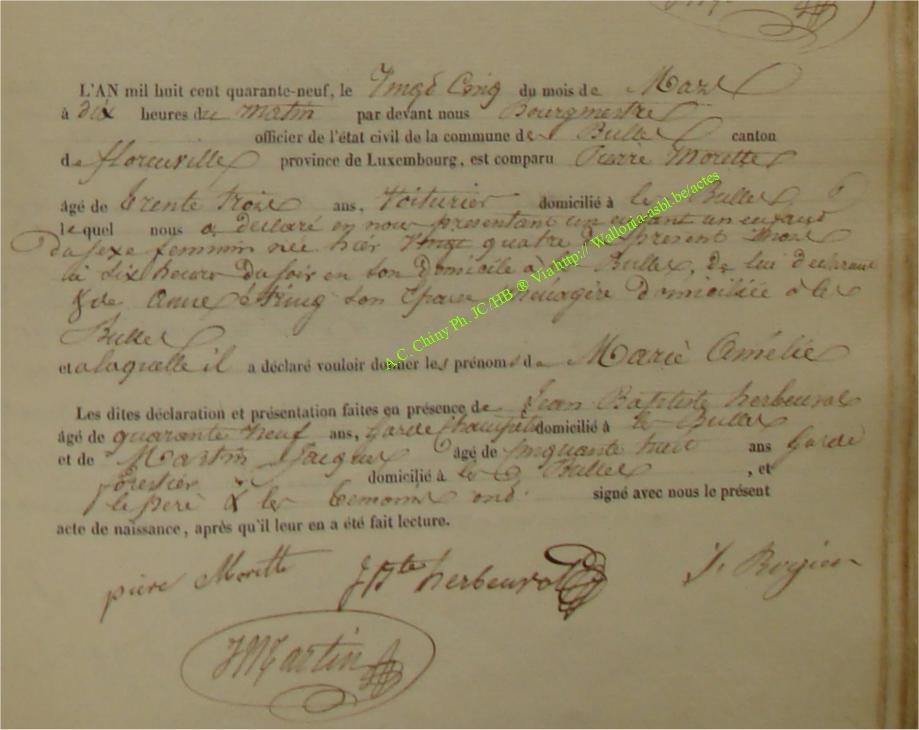 L'AN mil huit cent quarante-neuf, le Vingt Cinq du mois de Mars
à dix heures du matin par devant nous Bourgmestre
officier de l'état civil de la commune de Bulle canton
de florenville province de Luxembourg, est comparu Pierre Morette
âgé de trente trois ans, Voiturier domicilié à les Bulles
lequel nous a déclaré en nous présentant un enfant
du sexe feminin née hier Vingt quatre du présent mois
à six heures du soir en son domicile à les Bulles, de lui déclarant
& de Anne son Epouse ménagère domiciliée à les
Bulles
et a laquelle il a déclaré vouloir donner les prénoms de Marie Amélie
Les dites déclaration et présentation faites en présence de Jean Baptiste herbeuval
âgé de quarante neuf ans, Garde Champêtre domicilié à les Bulles
et de Martin Jacques âgé de cinquante huit ans Garde
forestier domicilié à les Bulles , et
le père & les temoins ont signé avec nous le présent
acte de naissance, après qu'il leur en a été fait lecture.
piere Morette JBte herbeuval
JMartin
A.C. Chiny Ph. JC/HB ® Via http:// Wallonia-asbl.be/actes